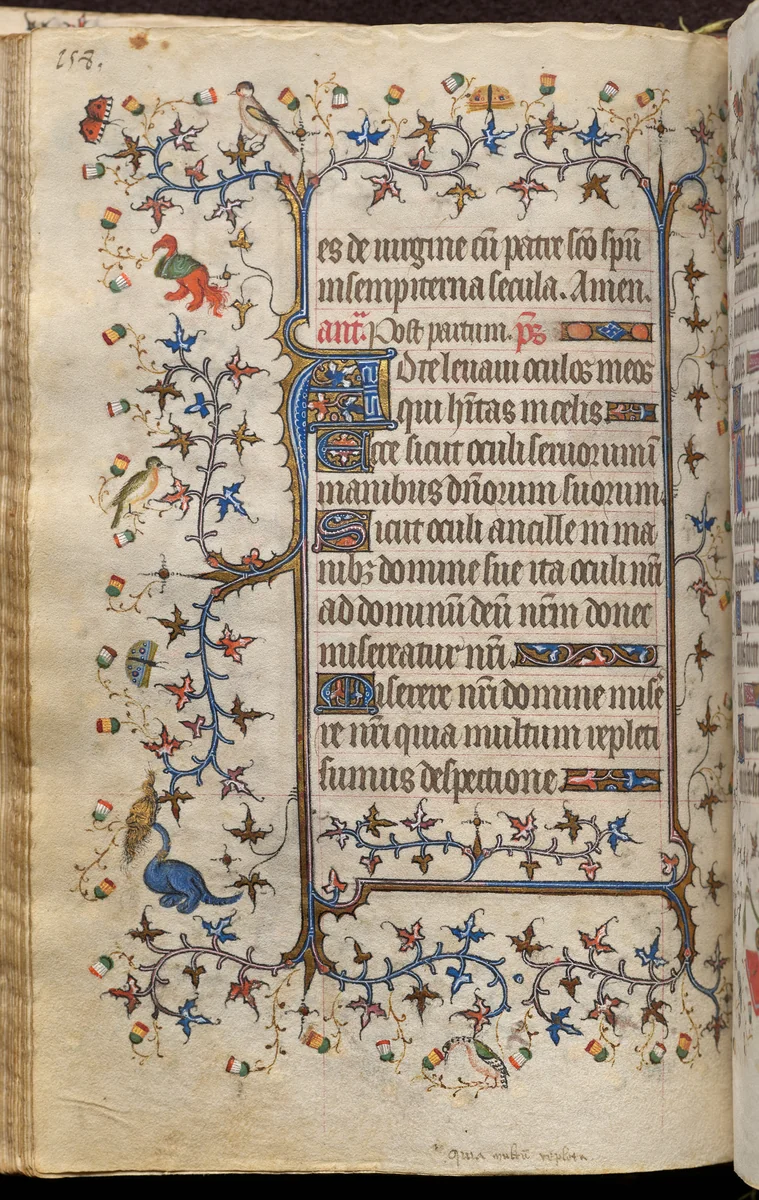 258.
es de uirgine cū patre sc̄o sp̄u
in sempiterna secula. Amen.
ant̄. Post partum. p̄s
Ad te leuaui oculos meos
qui h̄itas in celis
Ecce sicut oculi seruorum ī
manibus dn̄orum suorum.
Sicut oculi ancille in ma
nibꝫ domine sue ita oculi nr̄i
ad dominū deū nr̄m donec
misereatur nr̄i.
Miserere nr̄i domine mise
re nr̄i quia multum repleti
sumus despectione
quia multū repleti.